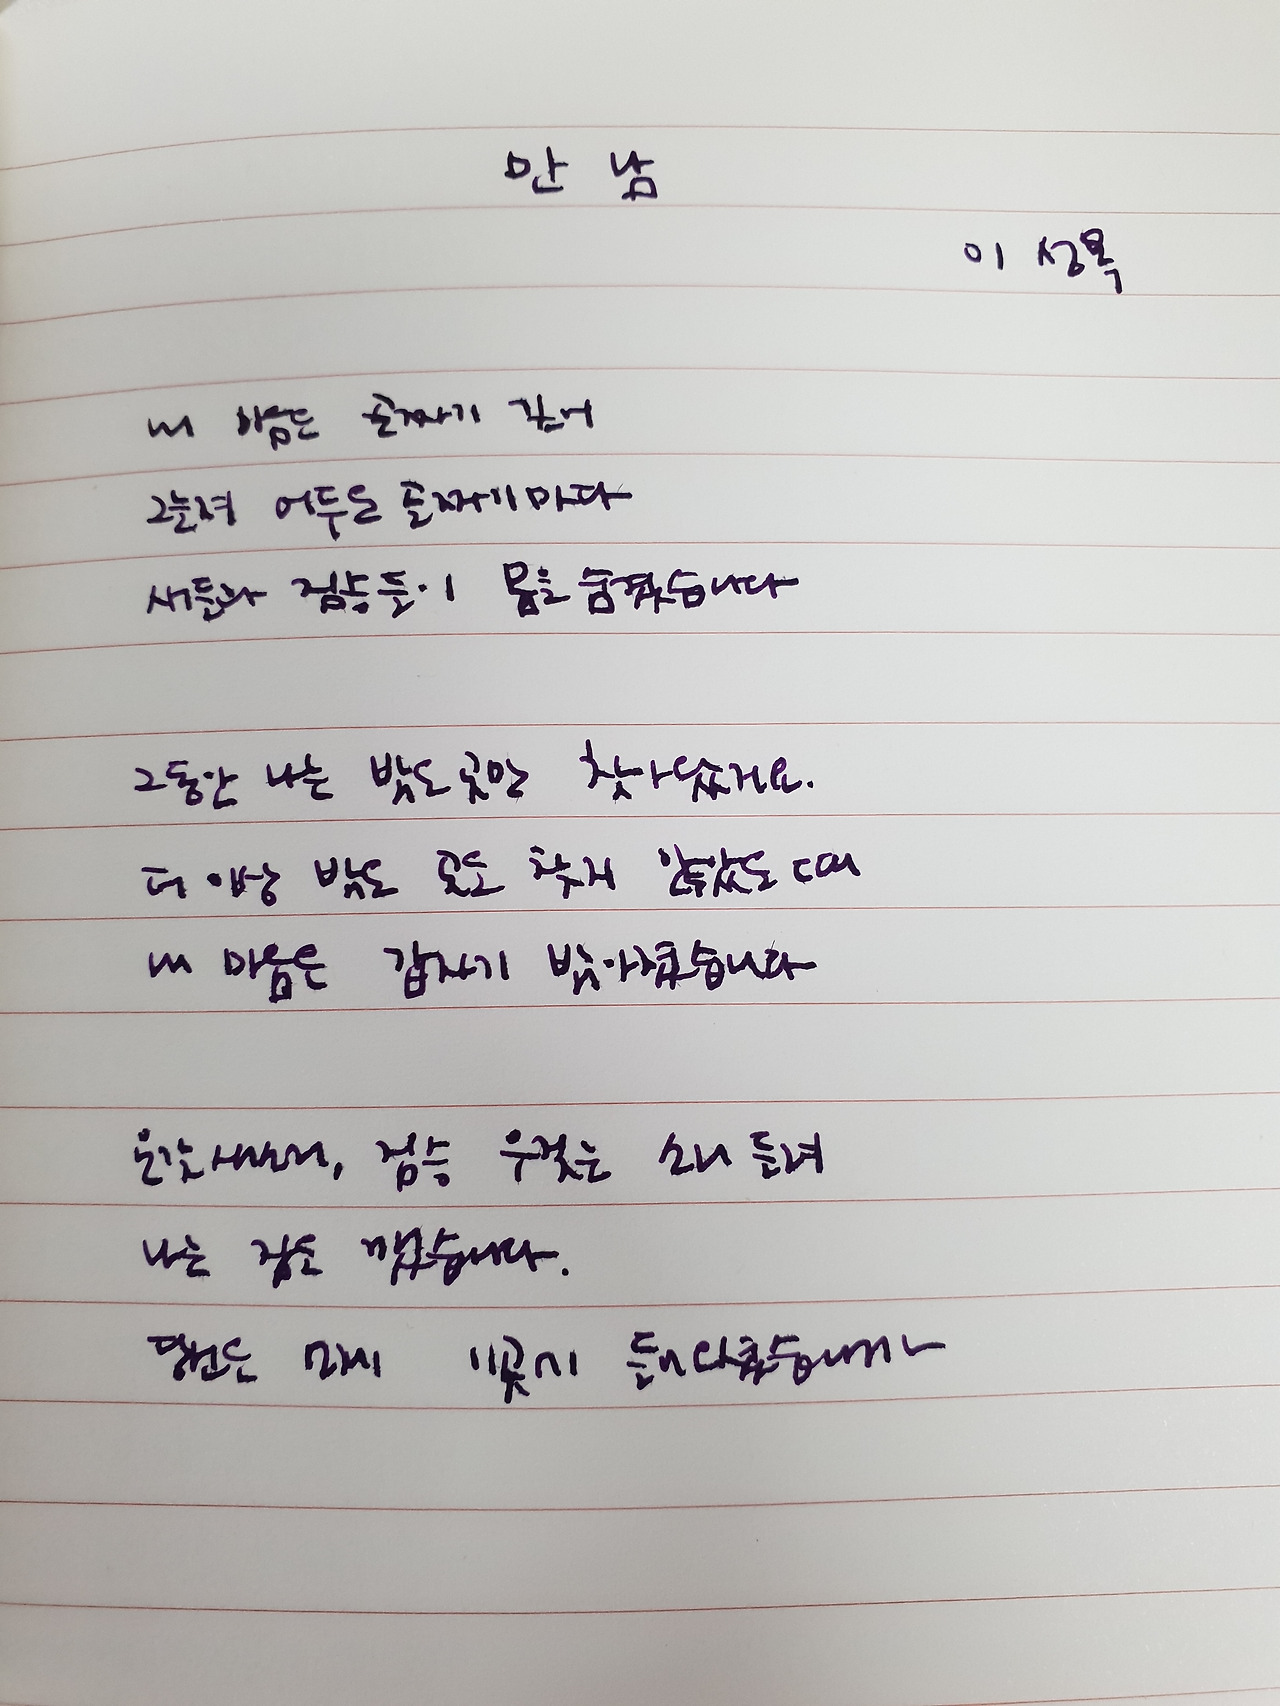 만남
이성복
내 마음은 골짜기 깊어
그늘져 어두운 골짜기마다
새들과 짐승들이 몸을 숨겼습니다
그동안 나는 밝은 곳만 찾아왔지요.
더 이상 밝은 곳을 찾지 않았을 때
내 마음은 갑자기 밝아졌습니다
온갖 새소리, 짐승 우짖는 소리 들려
나는 잠을 깼습니다.
당신은 언제 이곳에 들어오셨습니까